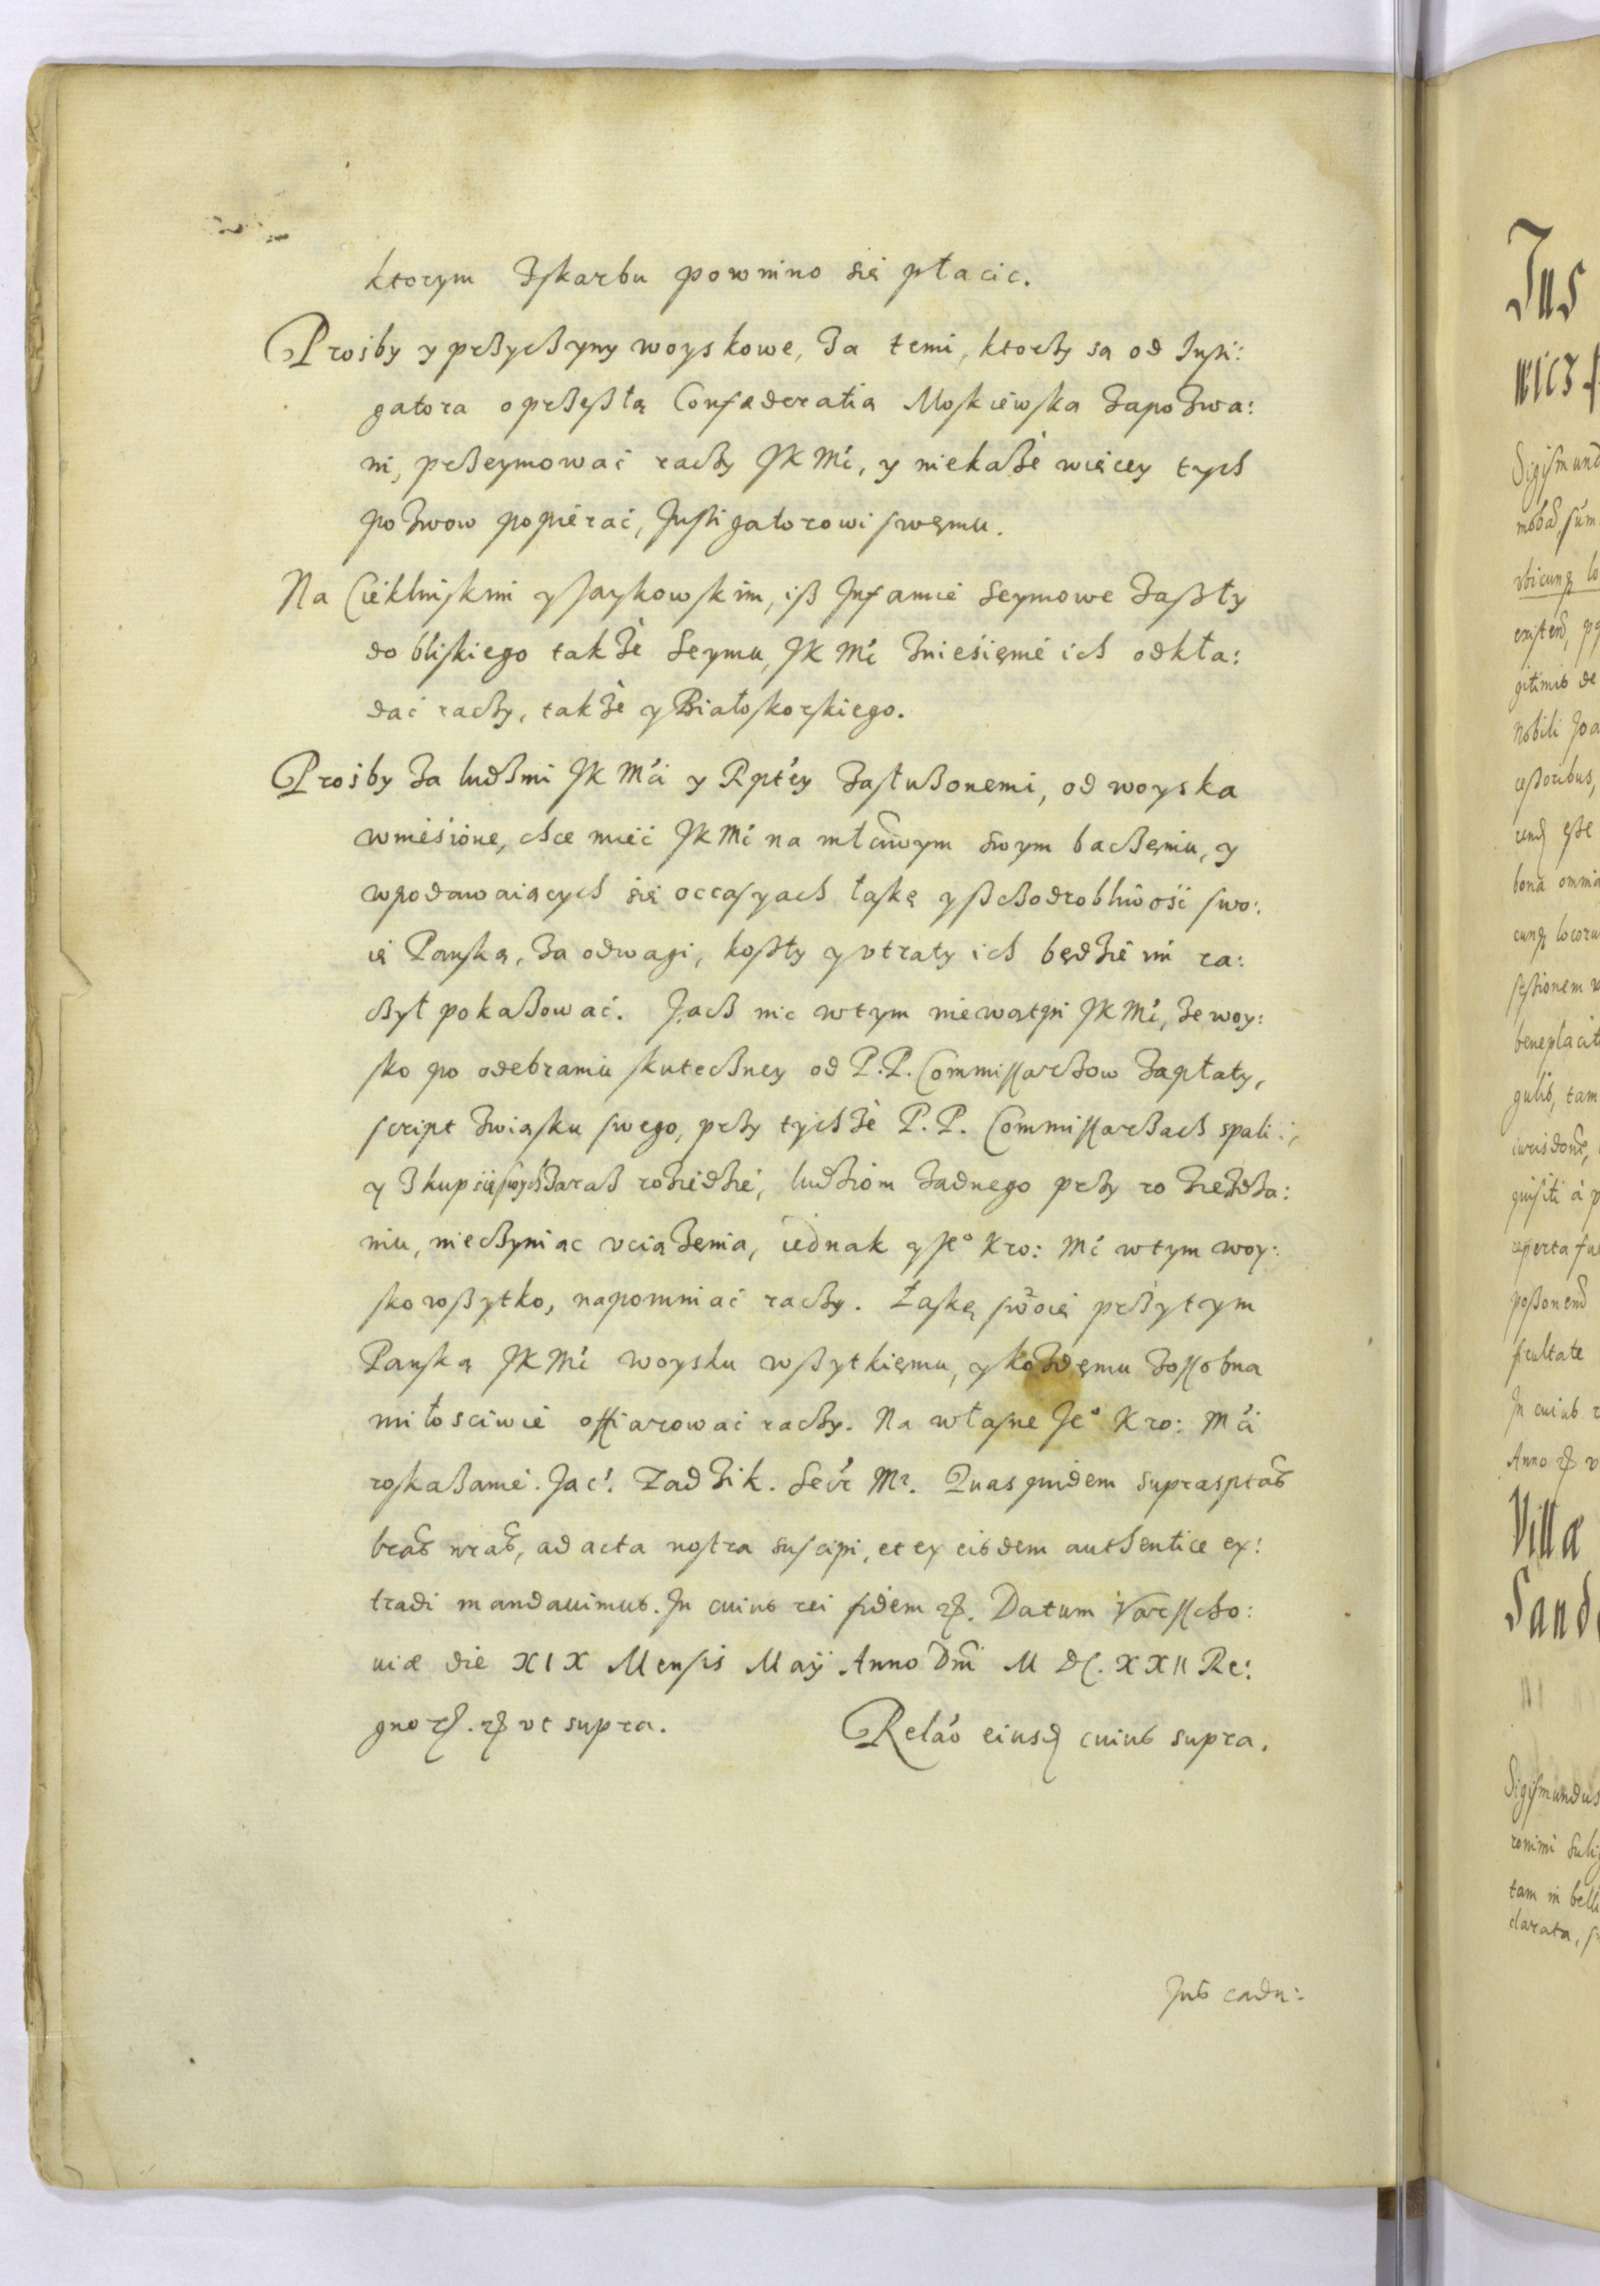 ktorym zskarbu powinno się płacic.
Prośby y przyczyny woyskowe, za temi, ktorzy są od Insti:
gatora oprzeszłą Confæderatią Moskiewska zapozwa:
ni, przeymować raczy JK Mć, y niekaże więcey tych
pozwow popierać, Instigatorowi swęmu.
Na Cieklinskim y iz Infamie Seymowe zaszły
do bliskiego takze Seymu, JK Mć zniesięnie ich odkła:
dać raczy, takze y Białoskorskiego.
Prośby za ludzmi JK Mći y Rptéy zasłużonemi, od woyska
wniesione, chce mieć JK Mć na swym baczęniu, y
wpodawaiących się occasyach łaskę y szczodrobliwość swo:
ię Panską, za odwagi, koszty y utraty ich będzie im ra:
czył pokazować. Jacz nic wtym niewątpi JK Mć, ze woy:
sko po odebraniu skuteczney od P.P. Commissarzow zapłaty,
script związku swego, przy tychze P.P. Commissarzach spali:,
y zkup swych zaraz roziedzie, ludziom zadnego przy roziezdza:
niu, nieczyniąc uciązęnia, iednak y Jeᵒ Kro: Mć wtym woy:
sko wszytko, napomniać raczy. Łaskę swoię przytym
Panską JK Mć woysku wszytkięmu, y kozdęmu zossobna
miłosciwie offiarować raczy. Na własne Jeᵒ Kro: Mći
roskazanie. Jac: Zadzik. Secr Mr. Quas quidem suprasptas
lras nras, ad acta nostra suscipi, et ex eisdem authentice ex:
tradi mandauimus. In cuius rei fidem etc. Datum Varscho:
uiæ die XIX Mensis Maij Anno Dni M DC. XXII Re:
gnor. etc ut supra.
Relao eiusd cuius supra.
Jus cadu:
Jus
Sigismund
ubicunq lo
nobili Joa
cessoribus,
bona omnia
cunq locoru
beneplacit
gulis, tam
reperta fu
In cuius r
Anno etc u
Villæ
Sando
Sigismundus
tam in belli
clarata,